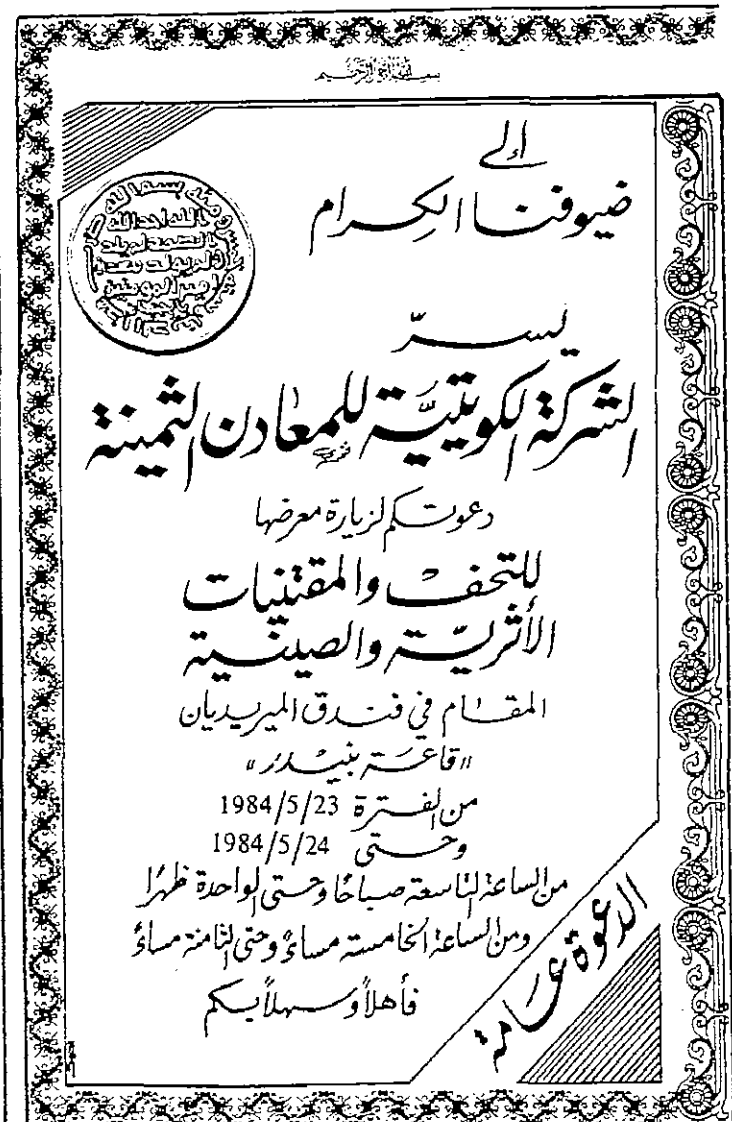 بسم الله الرحمن الرحيم
إلى
ضيوفنا الكرام
يسرّ
الشركة الكويتيّة للمعادن الثمينة
دعوتكم لزيارة معرضها
للتحف والمقتنيات
الأثريّة والصينية
المقام في فندق الميريديان
«قاعة بنيدر»
من الفترة 1984/5/23
وحتى 1984/5/24
من الساعة التاسعة صباحًا وحتى الواحدة ظهرًا
ومن الساعة الخامسة مساءً وحتى الثامنة مساءً
فأهلاً وسهلاً بكم
الدعوة عامة